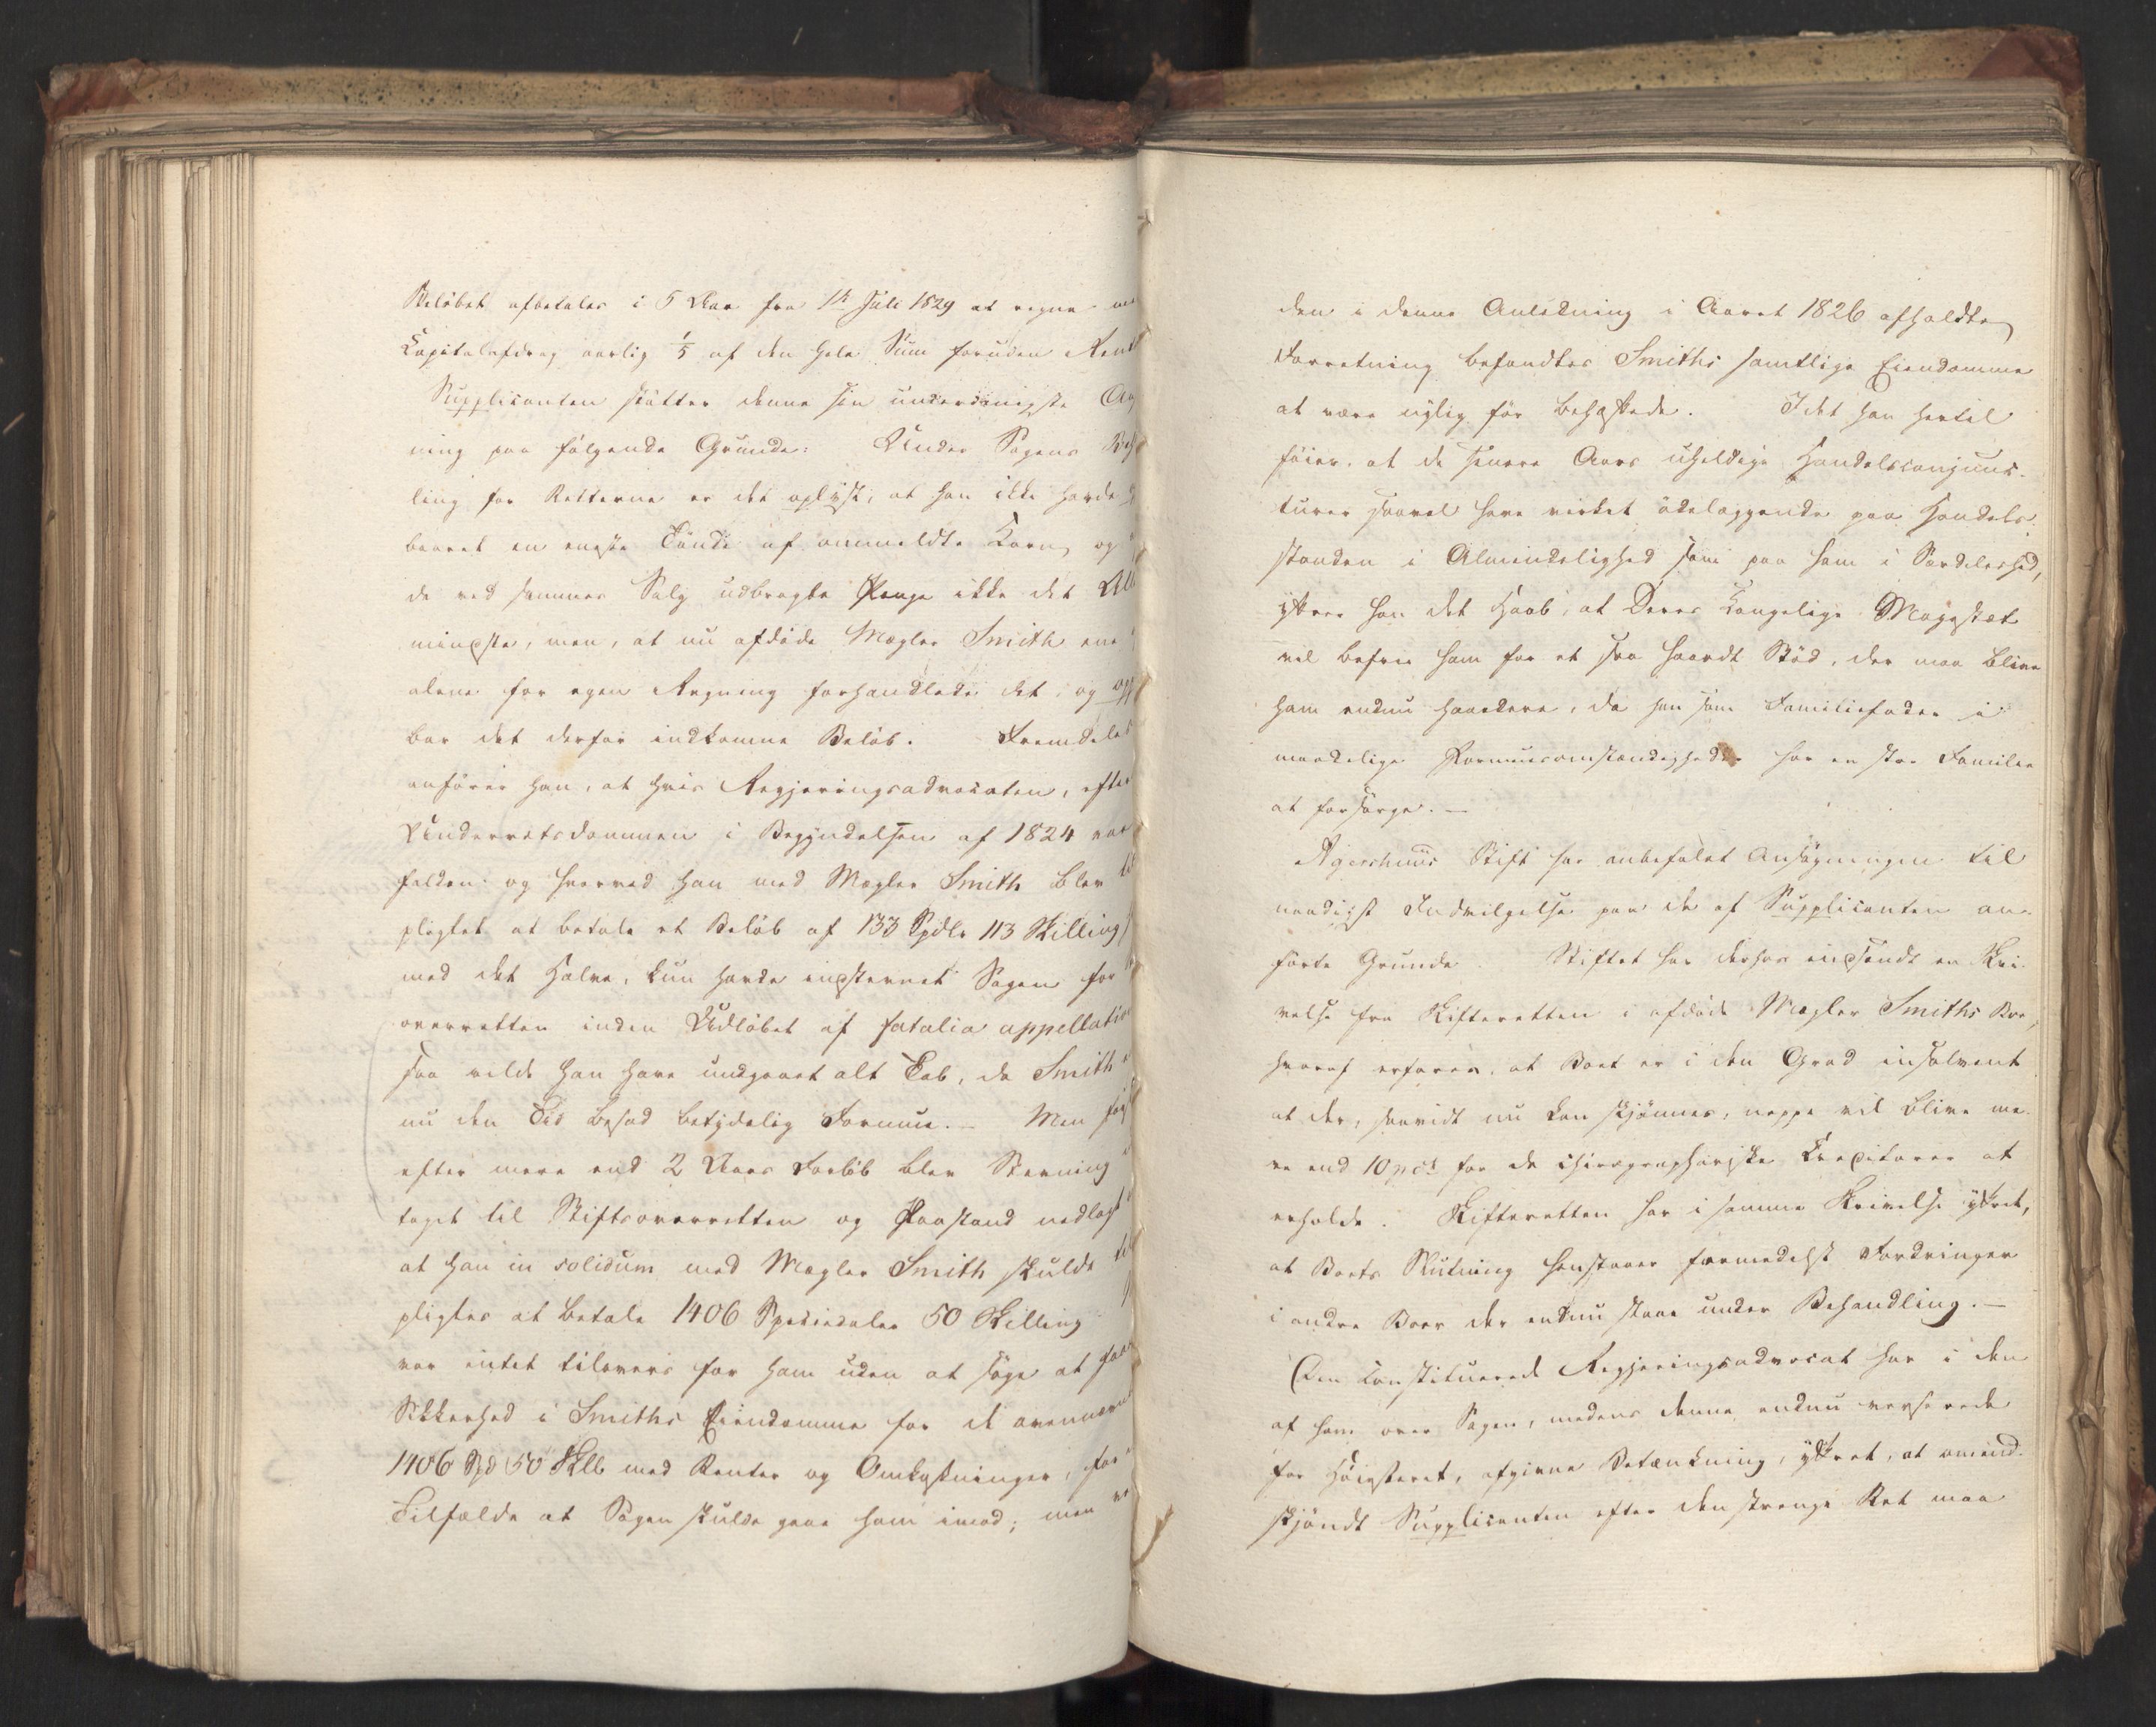 Beløbet afbetales i 5 Aar fra 1st Juli 1829 at regne
Capitalafdrag aarlig 1/5 af den hele Sum foruden
Supplicanten støtter denne sin underdanigste
ning paa følgende Grunde: Under Sagens
ling for Retterne er det oplyst, at han ikke havde
baaret en eneste Tønde af ommeldte Korn, og
de ved sammes Salg udbragte Penge ikke det
mindste, men, at nu afdøde Mægler Smith ene
alene for egen Regning forhandlede det, og
bar det derfor indkomne Beløb. Fremdeles
anfører han, at hvis Regjeringsadvocaten, efter
Underretsdommen i Begyndelsen af 1824 var
falden og hvorved han med Mægler Smith blev
pligtet at betale et Beløb af 133 Spdlr 113 Skilling
med det Halve, kun havde indstevnet Sagen for
overretten inden Udløbet af fatalia
saa vilde han have undgaaet alt Tab, da Smith
nu den Tid besad betydelig Formue. – Men
efter mere end 2 Aars Forløb blev Stevning
taget til Stiftsoverretten og Paastand nedlagt
at han in solidum med Mægler Smith skulde
pligtes at betale 1406 Speciedaler 50 Skilling
var intet tilovers for ham uden at søge at
Sikkerhed i Smiths Eiendomme for de
1406 Spd 50 Skll med Renter og Omkostninger, for
Tilfælde at Sagen skulde gaae ham imod; men
den i denne Anledning i Aaret 1826 afholdte
Forretning befandtes Smiths samtlige Eiendomme
at være nylig før behæftede. Idet han hertil
føier, at de senere Aars uheldige Handelsconjunc-
turer saavel have virket ødelæggende paa Handels-
standen i Almindelighed som paa ham i Særdeleshed,
yttrer han det Haab, at Deres Kongelige Majestæt
vil befrie ham for et saa haardt Stød, der maa blive
ham endnu haardere, da han som Familiefader i
maadelige Formuesomstændigheder har en stor Familie
at forsørge. –
Agershuus Stift har anbefalet Ansøgningen til
naadigst Indvilgelse paa de af Supplicanten an-
førte Grunde. Stiftet har derhos indsendt en Skri-
velse fra Skifteretten i afdøde Mægler Smiths Boe,
hvoraf erfares, at Boet er i den Grad insolvent
at der, saavidt nu kan skjønnes, neppe vil blive me-
re end 10 pCt for de chirographariske Creditorer at
erholde. Skifteretten har i samme Skrivelse yttret,
at Boets Slutning henstaaer formedelst Fordringer
i andre Boer der endnu staae under Behandling. –
Den constituerede Regjeringsadvocat har i den
af ham over Sagen, medens denne endnu verserede
for Høiesteret, afgivne Betænkning, yttret, at omend-
skjøndt Supplicanten efter den strenge Ret maa